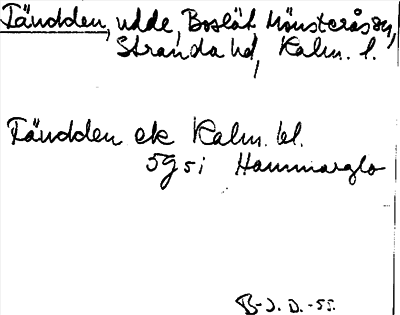 Tändden, udde, Boslät Mönsterås sn,
Stranda hd, Kalm. l.
Tändden ek Kalm. bl.
5g5i Hammarglo
B-J. D. -55.